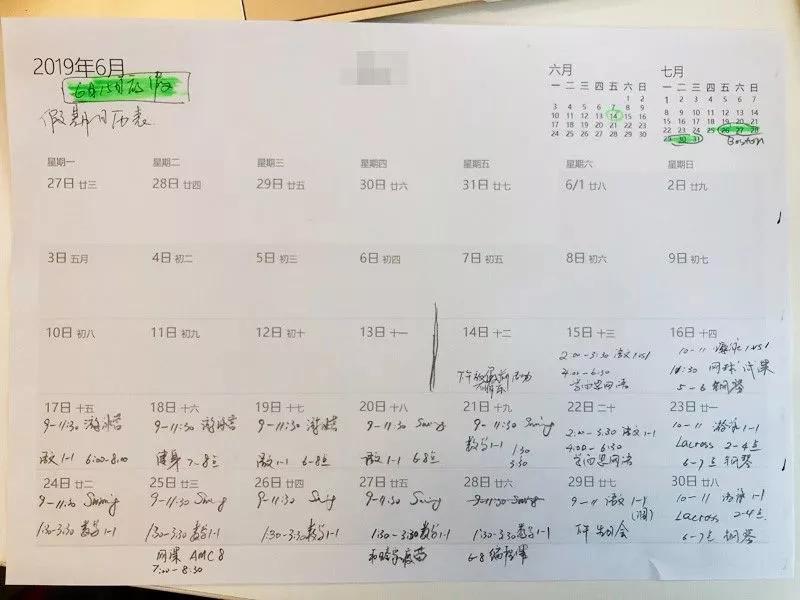 2019年6月
6月15日
假期日历表
六月
一 二 三 四 五 六 日
1 2
3 4 5 6 7 8 9
10 11 12 13 14 15 16
17 18 19 20 21 22 23
24 25 26 27 28 29 30
七月
一 二 三 四 五 六 日
1 2 3 4 5 6 7
8 9 10 11 12 13 14
15 16 17 18 19 20 21
22 23 24 25 26 27 28
29 30 31
Boston
星期一 星期二 星期三 星期四 星期五 星期六 星期日
27日 廿三 28日 廿四 29日 廿五 30日 廿六 31日 廿七 6/1 廿八 2日 廿九
3日 五月 4日 初二 5日 初三 6日 初四 7日 初五 8日 初六 9日 初七
10日 初八 11日 初九 12日 初十 13日 十一 14日 十二 15日 十三 16日 十四
下午 活动
2:00-3:30 语文 1v1
4:00-6:30
学而思网课
10-11 游泳 1vs1
11:30 网球试课
5-6 钢琴
17日 十五 18日 十六 19日 十七 20日 十八 21日 十九 22日 二十 23日 廿一
9-11:30 游泳营 9-11:30 游泳营 9-11:30 游泳营 9-11:30 Swimg 9-11:30 Swimg
语文 1-1 6:00-8:00 健身 7-8点 语文 1-1 6-8点 语文 1-1 6-8点 数学 1-1 1:30
3:30
2:00-3:30 语文 1-1
4:00-6:30
学而思网课
10-11 游泳 1-1
Lacross 2-4点
6-7点 钢琴
24日 廿二 25日 廿三 26日 廿四 27日 廿五 28日 廿六 29日 廿七 30日 廿八
9-11:30 Swimg 9-11:30 Swimg 9-11:30 Swimg 9-11:30 Swimg 9-11:30 Swimg
1:30-3:30 数学 1-1 1:30-3:30 数学 1-1 1:30-3:30 数学 1-1 1:30-3:30 数学 1-1 1:30-3:30 数学 1-1
网课 AMC 8
7:00-8:30
疫苗
6-8 编程课
9-11 语文 1-1
下午 生日会
10-11 游泳 1-1
Lacross 2-4点
6-7点 钢琴